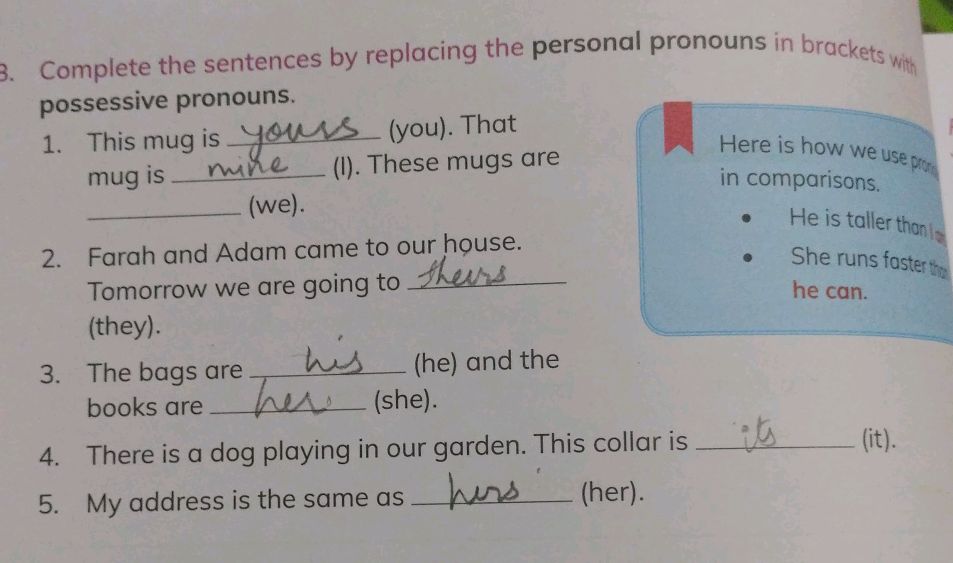 3. Complete the sentences by replacing the personal pronouns in brackets with
possessive pronouns.
1. This mug is yours (you). That
mug is mine (I). These mugs are
____________ (we).
2. Farah and Adam came to our house.
Tomorrow we are going to theirs
(they).
3. The bags are his (he) and the
books are her (she).
4. There is a dog playing in our garden. This collar is its (it).
5. My address is the same as hers (her).
Here is how we use
in comparisons.
• He is taller than I
• She runs faster than
he can.